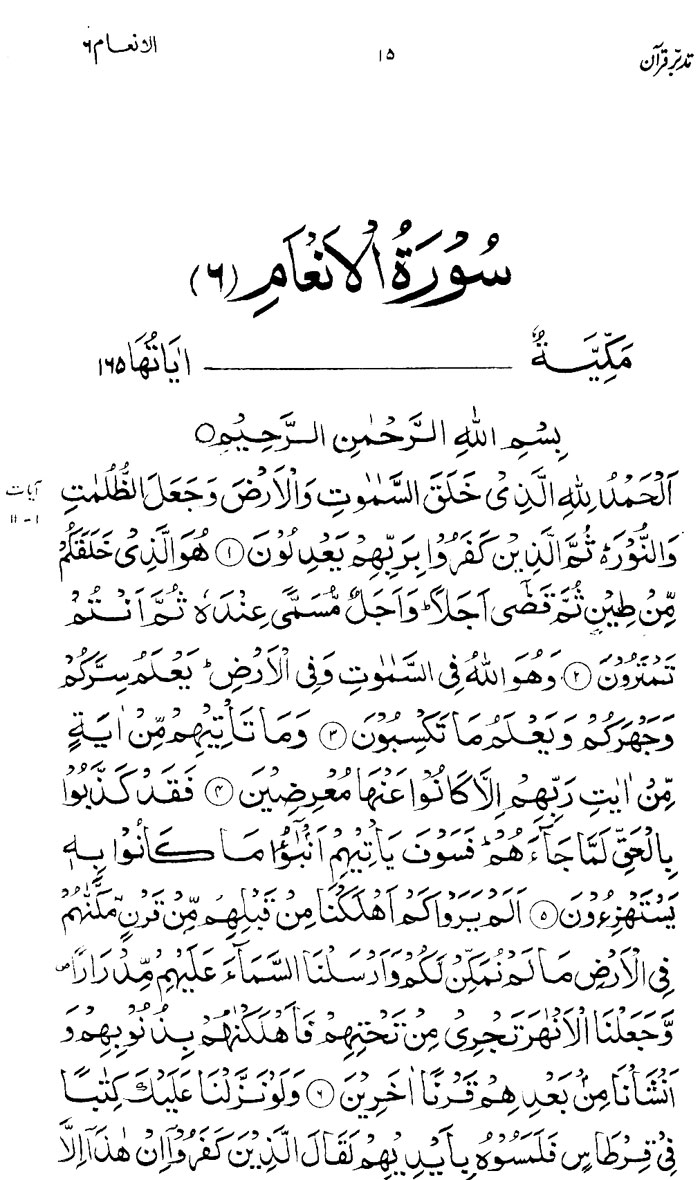 تدبرِ قرآن ۱۵ الانعام ۶
سُوْرَةُ الْاَنْعَامِ (۶)
مَكِّيَّةٌ اٰيَاتُهَا ۱۶۵
بِسْمِ اللّٰهِ الرَّحْمٰنِ الرَّحِيْمِ ○
اَلْحَمْدُ لِلّٰهِ الَّذِیْ خَلَقَ السَّمٰوٰتِ وَالْاَرْضَ وَجَعَلَ الظُّلُمٰتِ
آیات
۱-۱۱
وَالنُّوْرَ ؕ ثُمَّ الَّذِيْنَ كَفَرُوْا بِرَبِّهِمْ يَعْدِلُوْنَ ۱ هُوَ الَّذِیْ خَلَقَكُمْ
مِّنْ طِيْنٍ ثُمَّ قَضٰۤى اَجَلًا ؕ وَاَجَلٌ مُّسَمًّى عِنْدَهٗ ثُمَّ اَنْتُمْ
تَمْتَرُوْنَ ۲ وَهُوَ اللّٰهُ فِی السَّمٰوٰتِ وَفِی الْاَرْضِ ؕ يَعْلَمُ سِرَّكُمْ
وَجَهْرَكُمْ وَيَعْلَمُ مَا تَكْسِبُوْنَ ۳ وَمَا تَاْتِيْهِمْ مِّنْ اٰيَةٍ
مِّنْ اٰيٰتِ رَبِّهِمْ اِلَّا كَانُوْا عَنْهَا مُعْرِضِيْنَ ۴ فَقَدْ كَذَّبُوْا
بِالْحَقِّ لَمَّا جَآءَهُمْ ؕ فَسَوْفَ يَاْتِيْهِمْ اَنْۢبٰٓؤُا مَا كَانُوْا بِهٖ
يَسْتَهْزِءُوْنَ ۵ اَلَمْ يَرَوْا كَمْ اَهْلَكْنَا مِنْ قَبْلِهِمْ مِّنْ قَرْنٍ مَّكَّنّٰهُمْ
فِی الْاَرْضِ مَا لَمْ نُمَكِّنْ لَّكُمْ وَاَرْسَلْنَا السَّمَآءَ عَلَيْهِمْ مِّدْرَارًا ص
وَّجَعَلْنَا الْاَنْهٰرَ تَجْرِیْ مِنْ تَحْتِهِمْ فَاَهْلَكْنٰهُمْ بِذُنُوْبِهِمْ وَ
اَنْشَاْنَا مِنْۢ بَعْدِهِمْ قَرْنًا اٰخَرِيْنَ ۶ وَلَوْ نَزَّلْنَا عَلَيْكَ كِتٰبًا
فِیْ قِرْطَاسٍ فَلَمَسُوْهُ بِاَيْدِيْهِمْ لَقَالَ الَّذِيْنَ كَفَرُوْۤا اِنْ هٰذَاۤ اِلَّا